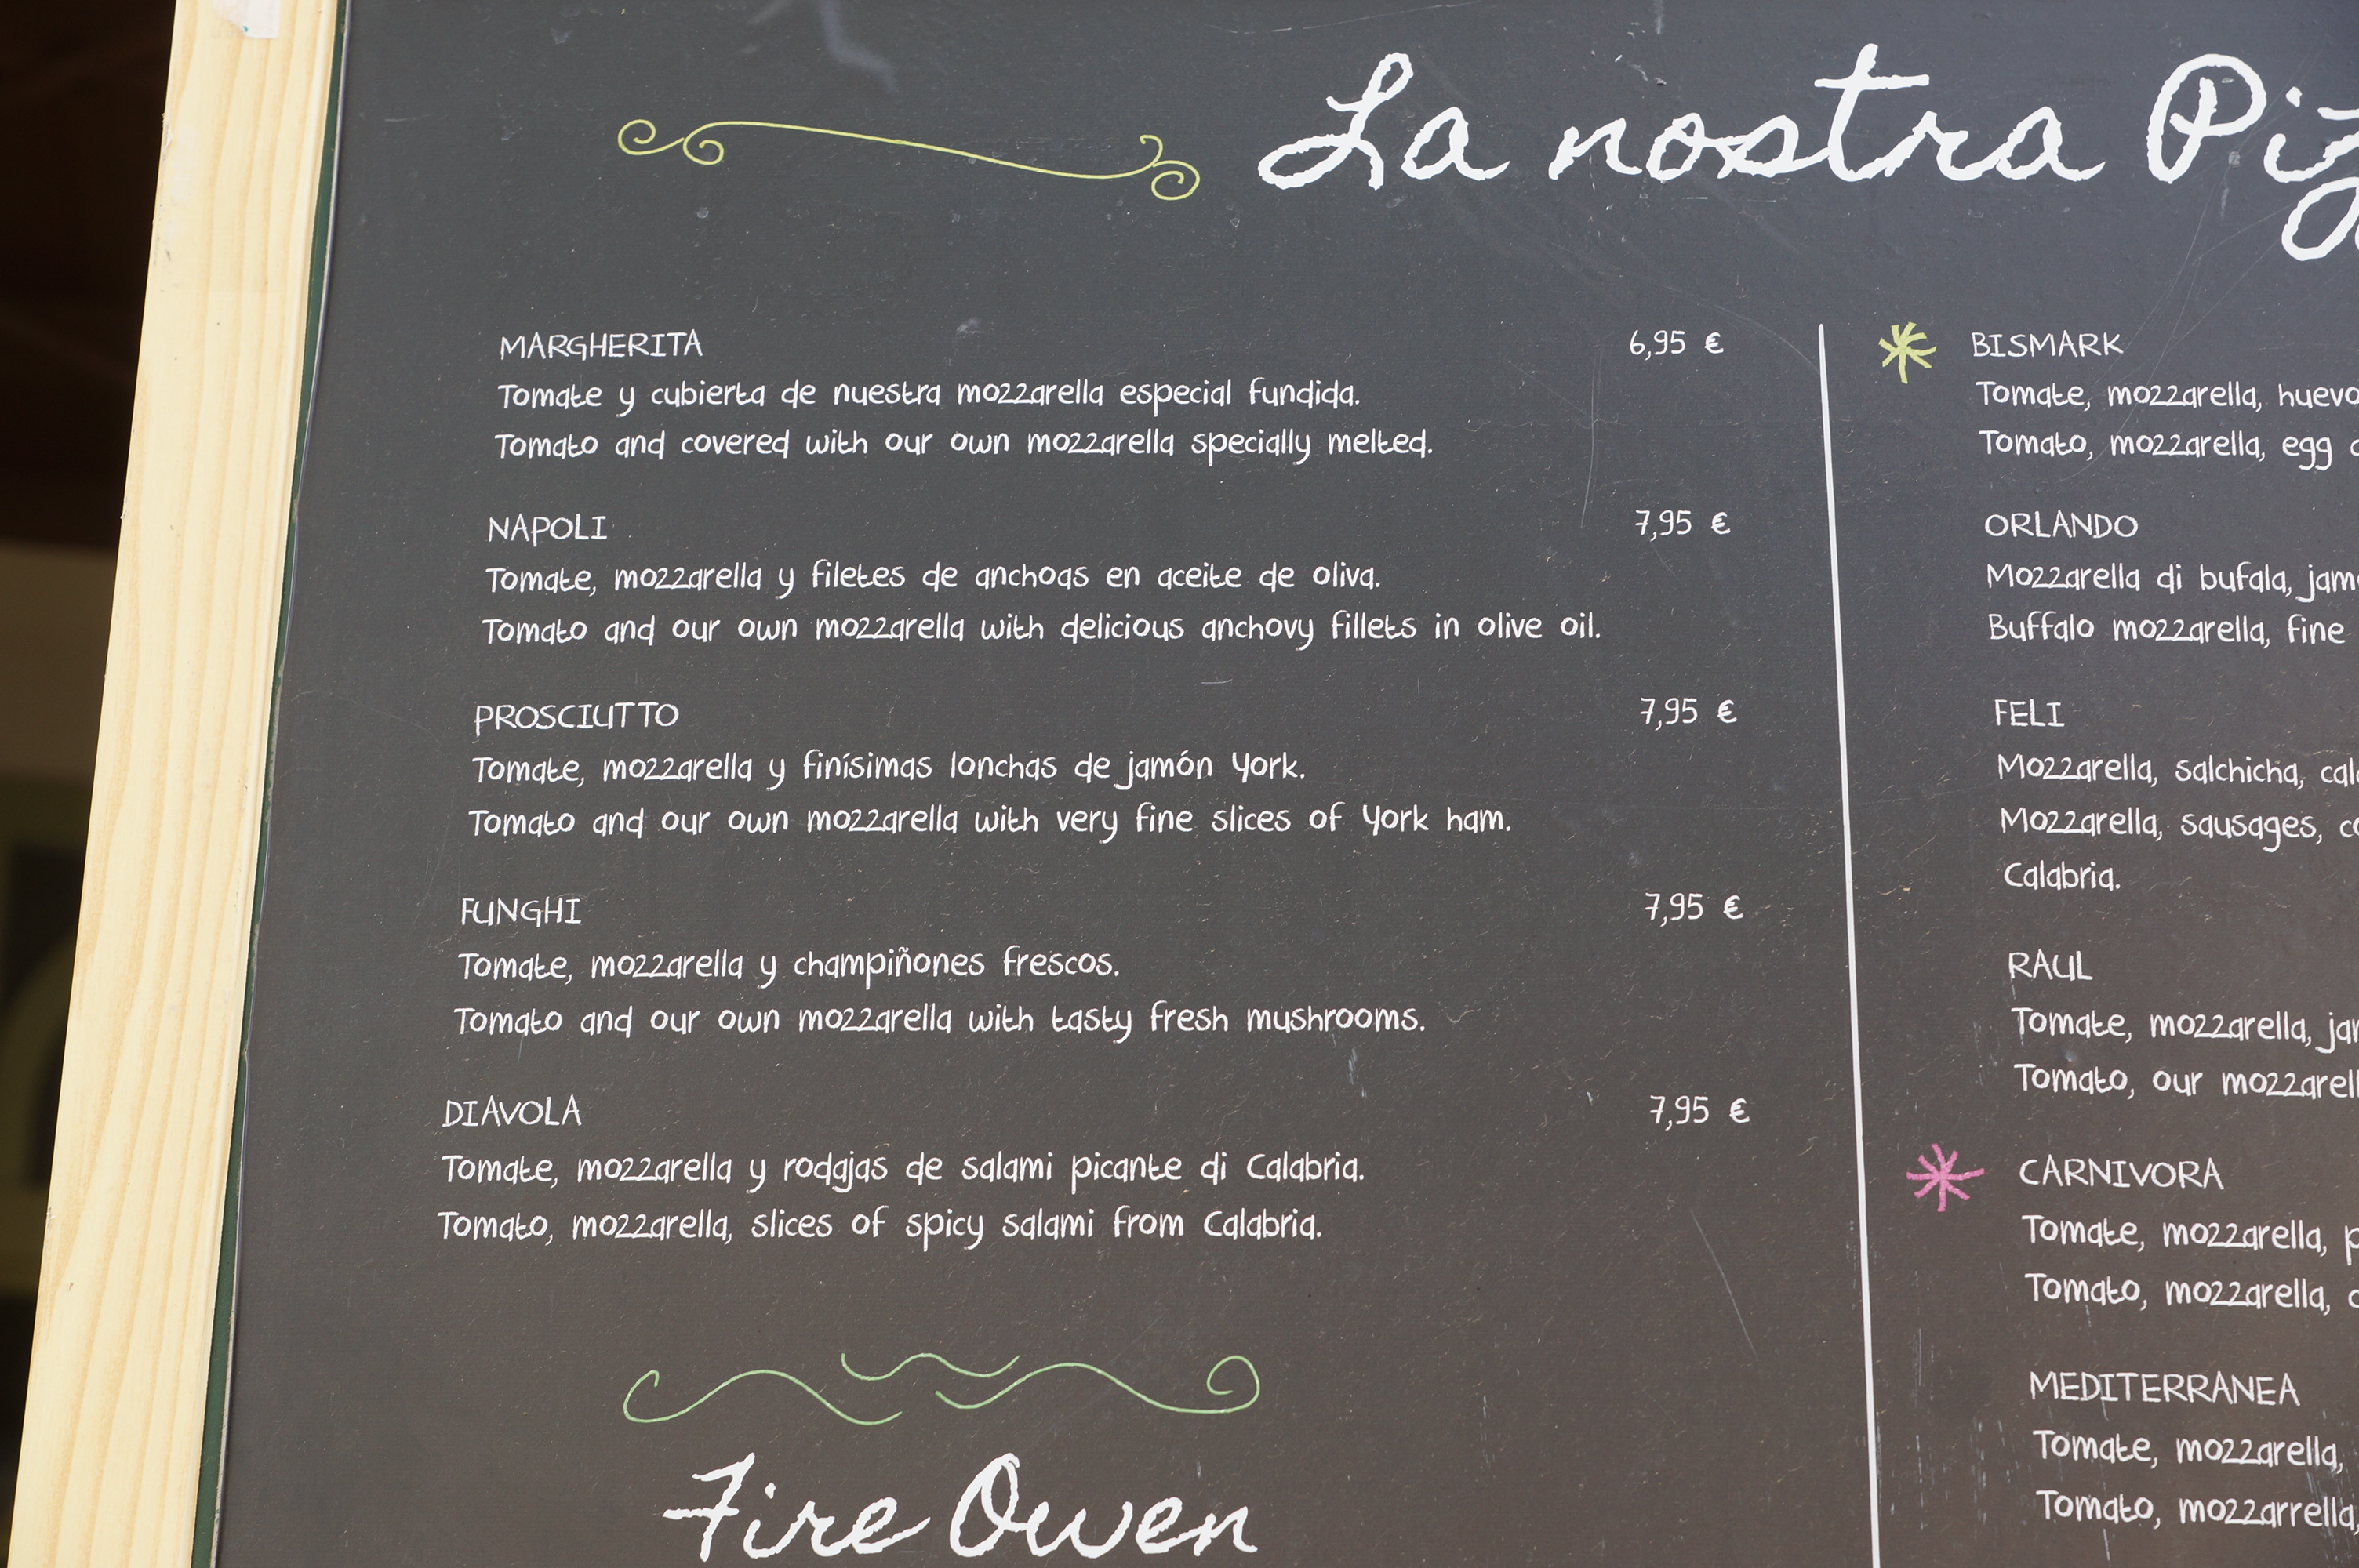 La nostra
MARGHERITA 6,95 €
Tomate y cubierta de nuestra mozzarella especial fundida.
Tomato and covered with our own mozzarella specially melted.
NAPOLI 7,95 €
Tomate, mozzarella y filetes de anchoas en aceite de oliva.
Tomato and our own mozzarella with delicious anchovy fillets in olive oil.
PROSCIUTTO 7,95 €
Tomate, mozzarella y finísimas lonchas de jamón York.
Tomato and our own mozzarella with very fine slices of York ham.
FUNGHI 7,95 €
Tomate, mozzarella y champiñones frescos.
Tomato and our own mozzarella with tasty fresh mushrooms.
DIAVOLA 7,95 €
Tomate, mozzarella y rodgjas de salami picante di Calabria.
Tomato, mozzarella, slices of spicy salami from Calabria.
Fire Owen
BISMARK
Tomate, mozzarella, huevo
Tomato, mozzarella, egg
ORLANDO
Mozzarella di bufala,
Buffalo mozzarella, fine
FELI
Mozzarella, salchicha,
Mozzarella, sausages,
Calabria.
RAUL
Tomate, mozzarella,
Tomato, our
CARNIVORA
Tomate, mozzarella,
Tomato, mozzarella,
MEDITERRANEA
Tomate, mozzarella,
Tomato, mozzarrella,